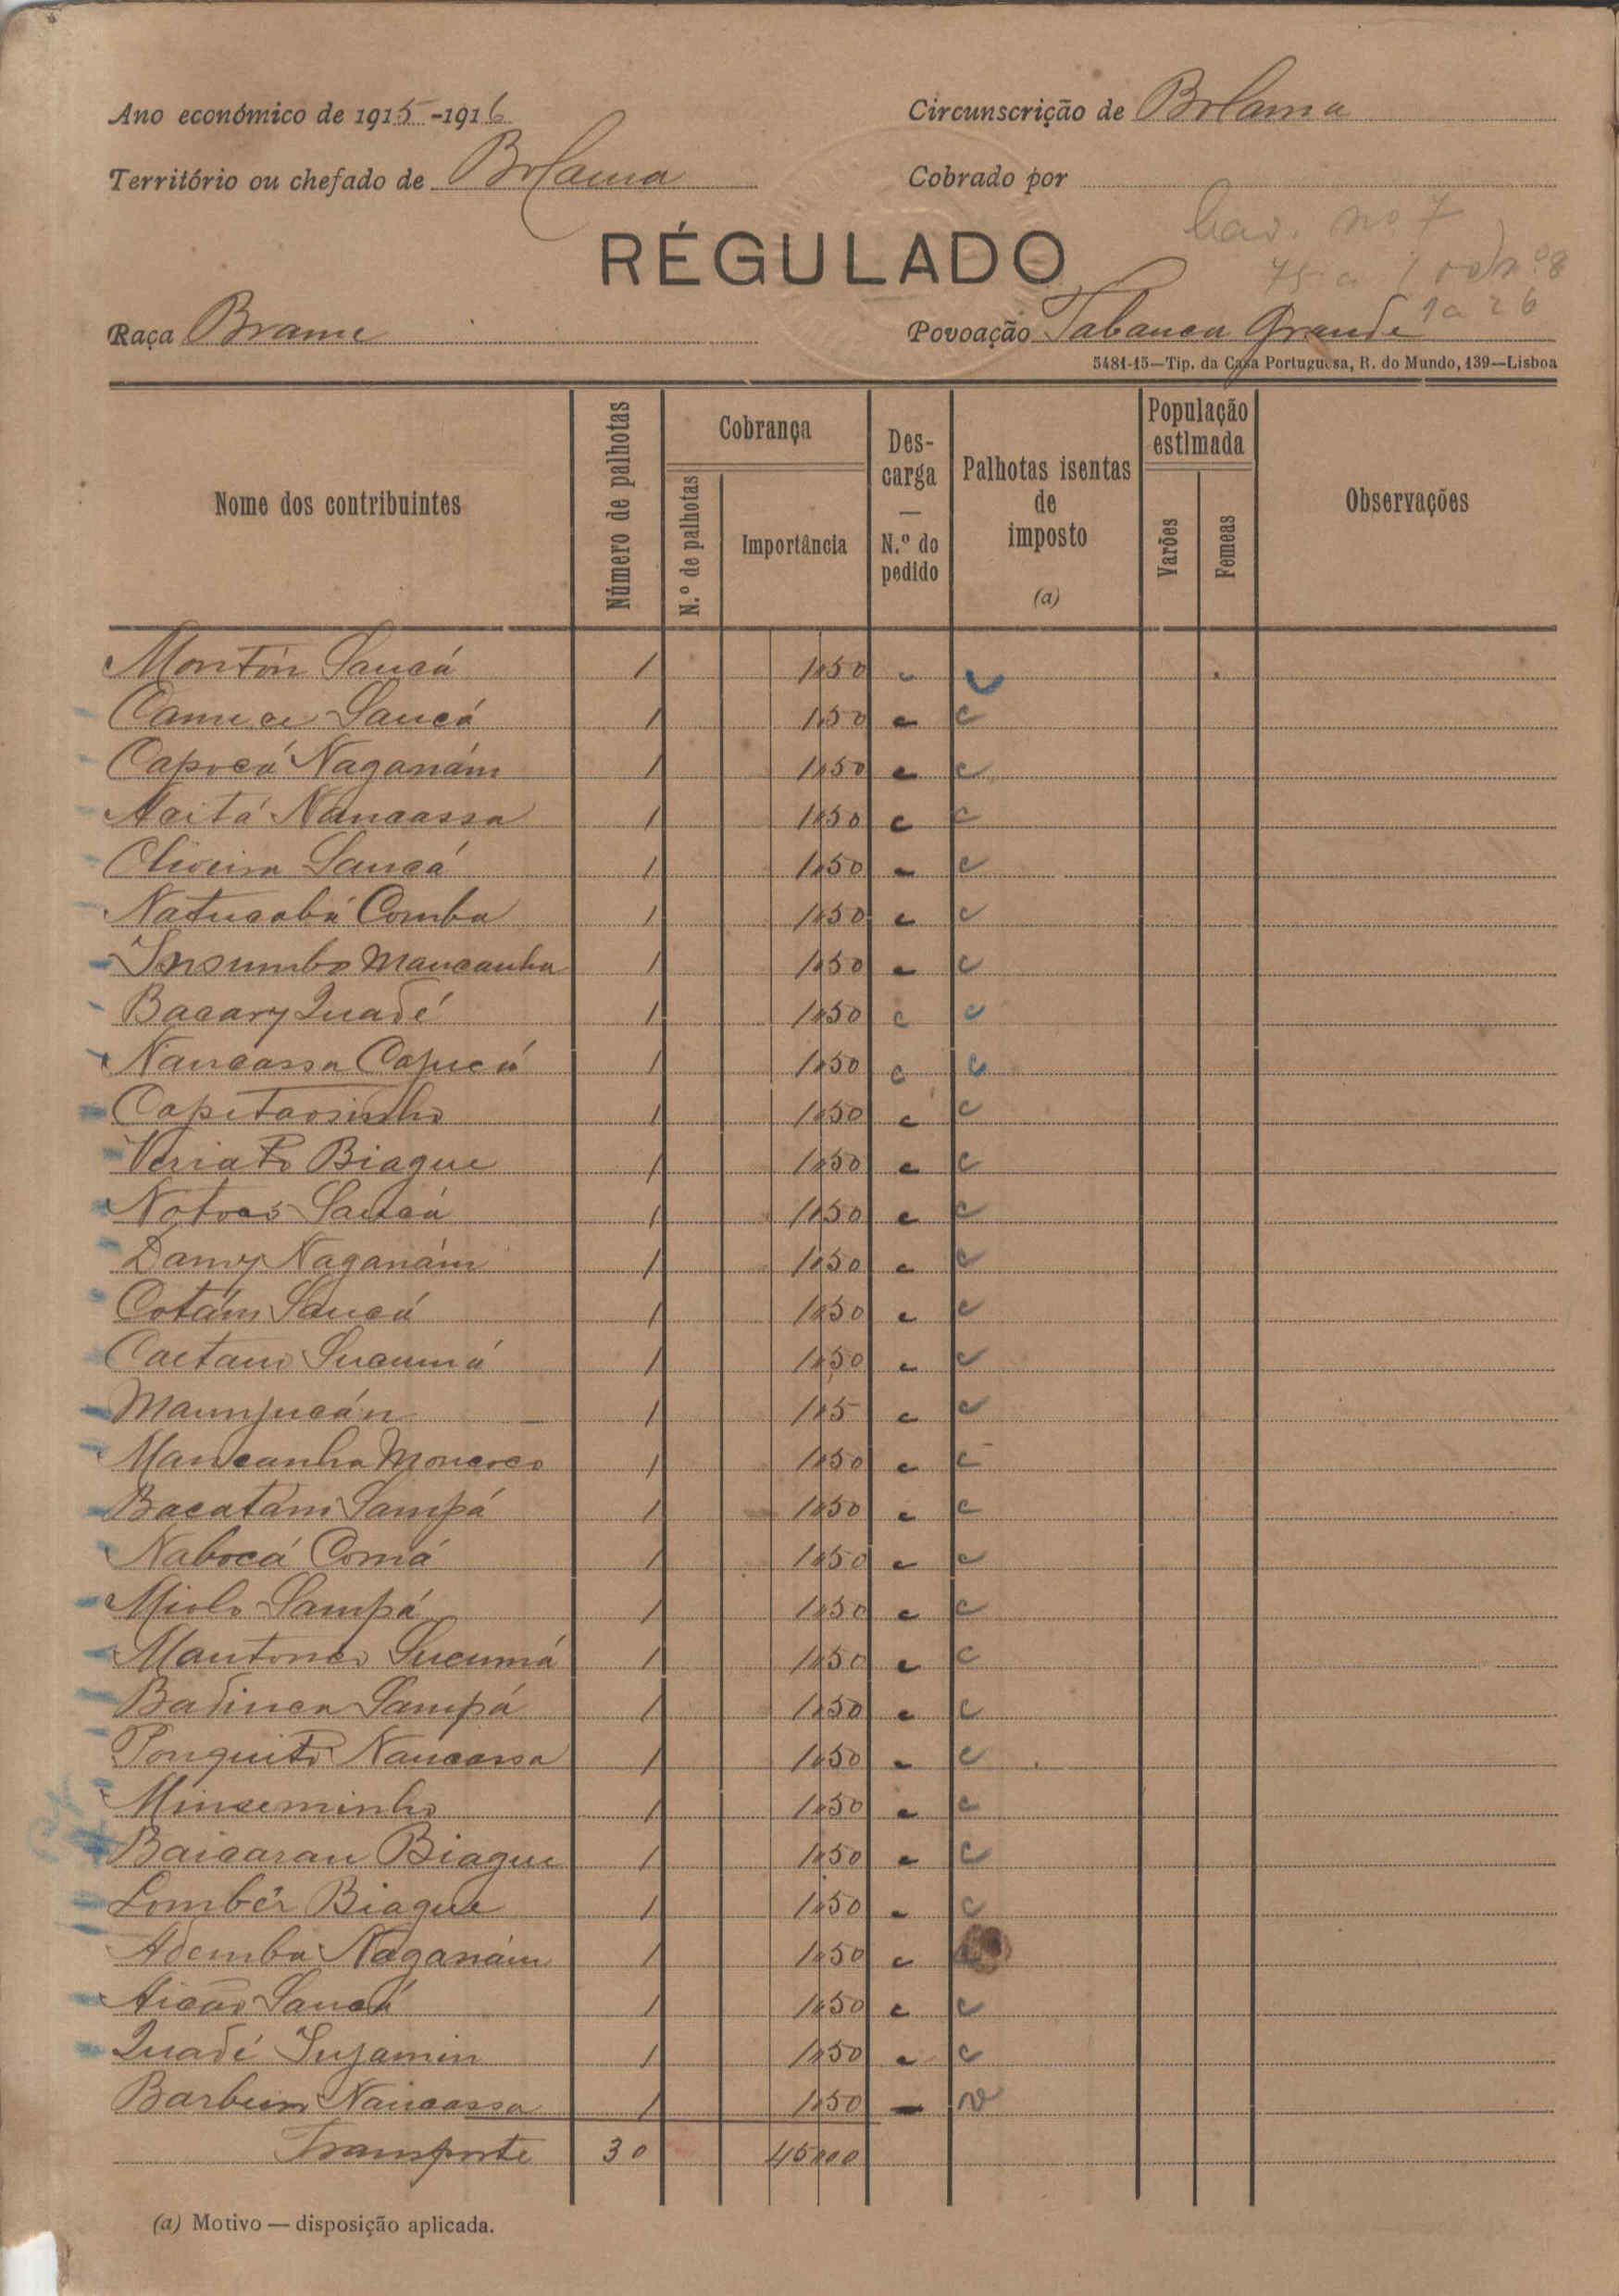 Ano económico de 1915-1916
Circunscrição de Bolama
Território ou chefado de Bolama
Cobrado por
RÉGULADO
nº 7
nº 8
1 a 26
Raça Brame
Povoação Tabanca Grande
5481-15—Tip. da Casa Portuguesa, R. do Mundo, 139—Lisboa
Nome dos contribuintes
Número de palhotas
Cobrança
N.º de palhotas
Importância
Descarga — N.º do pedido
Palhotas isentas de imposto (a)
População estimada
Varões
Femeas
Observações
Montôn Sancá 1 1$50
Sancá 1 1$50
Capocá Naganám 1 1$50
Acitá Nancassa 1 1$50
Oliveira Sancá 1 1$50
Natucabú Comba 1 1$50
Insumbo Mancanha 1 1$50
Bacary Quadé 1 1$50
Nancassa Capucú 1 1$50
Capitãosinho 1 1$50
Veriato Biague 1 1$50
Sancá 1 1$50
Damy Naganám 1 1$50
Cotám Sancá 1 1$50
Caetano Sucumá 1 1$50
Maunjucán 1 1$5
Mancanha Moncoco 1 1$50
Bacatám Sampá 1 1$50
Nabocá Comá 1 1$50
Miolo Sampá 1 1$50
Sucumá 1 1$50
Badinca Sampá 1 1$50
Ponquito Nancassa 1 1$50
Minseminho 1 1$50
Baicaran Biague 1 1$50
Lombér Biague 1 1$50
Ademba Naganám 1 1$50
Aicão Sancá 1 1$50
Quadé Injamin 1 1$50
Nancassa 1 1$50
Transporte 30 45$00
(a) Motivo — disposição aplicada.